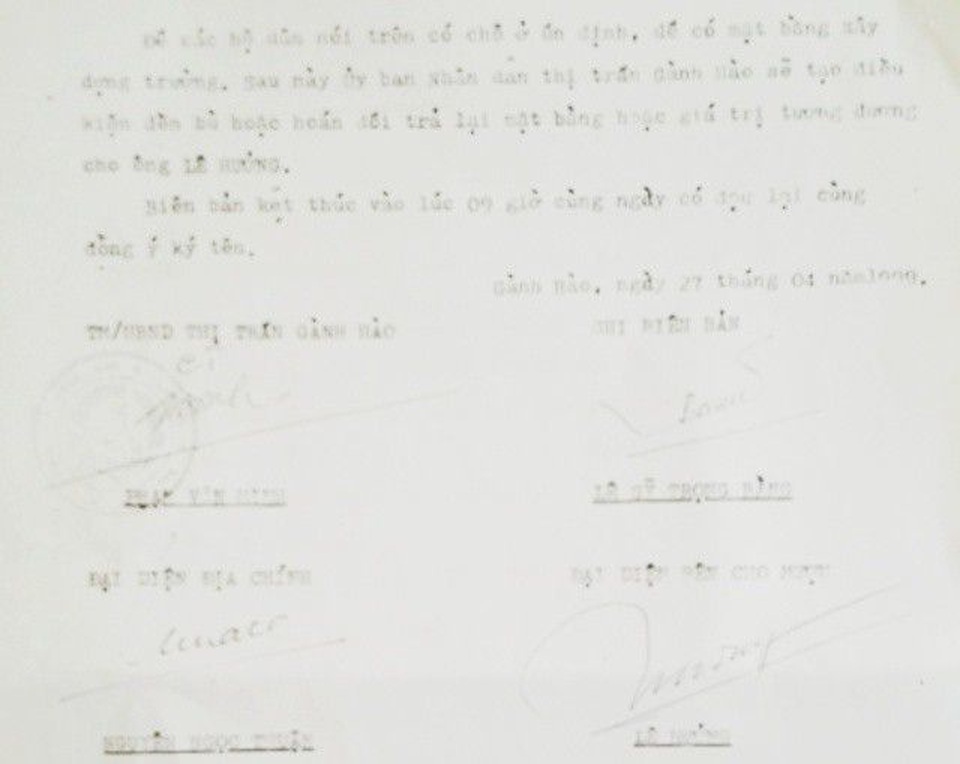 Để các hộ dân nói trên có chỗ ở ổn định, để có mặt bằng xây
dựng trường. Sau này Ủy ban Nhân dân thị trấn Gành Hào sẽ tạo điều
kiện đền bù hoặc hoán đổi trả lại mặt bằng hoặc giá trị tương đương
cho ông LÊ HƯỞNG.
Biên bản kết thúc vào lúc 09 giờ cùng ngày có đọc lại cùng
đồng ý ký tên.
Gành Hào, ngày 27 tháng 04 năm
TM/UBND THỊ TRẤN GÀNH HÀO
GHI BIÊN BẢN
PHẠM VĂN MINH
LÊ SỸ TRỌNG BẰNG
ĐẠI DIỆN ĐỊA CHÍNH
ĐẠI DIỆN BÊN CHO MƯỢN
NGUYỄN NGỌC THUẬN
LÊ HƯỞNG